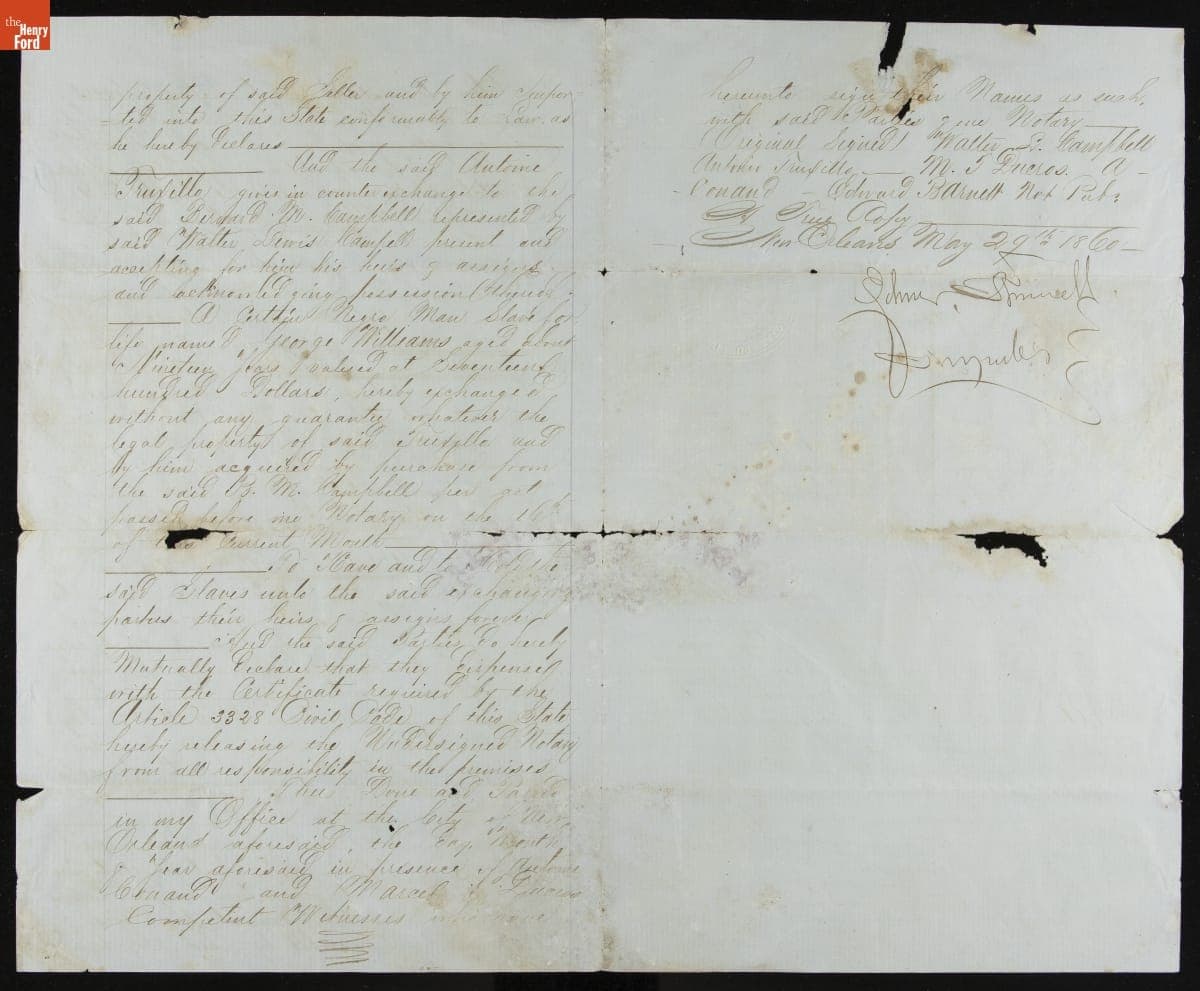 the
Henry
Ford
property of said Seller and by him impor-
-ted into this State conformably to Law. as
he hereby Declares
And the said Antoine
Truxillo gives in counter exchange to the
said Bernard M. Campbell represented by
said Walter Lewis Campbell present and
accepting for him his heirs & assigns
and acknowledging possession thereof
A Certain Negro Man Slave for
life named George Williams aged about
Nineteen Years valued at Seventeen
hundred Dollars, hereby exchanged
without any guaranty whatever the
legal property of said Truxillo and
by him acquired by purchase from
the said B. M. Campbell per act
passed before me Notary on the 16th
of this Current Month
To Have and to Hold the
said Slaves unto the said exchanging
parties their heirs & assigns forever
And the said Parties do hereby
Mutually Declare that they dispensed
with the Certificate required by the
Article 3328 Civil Code of this State
hereby releasing the Undersigned Notary
from all responsibility in the premises
Thus Done and Passed
in my Office at the City of New
Orleans aforesaid, the Day, Month
& Year aforesaid in presence of Antoine
Conand and Marcel T Ducros
Competent Witnesses who have
hereunto sign their Names as such,
with said Parties & me Notary
Original Signed Walter L. Campbell
Antoine Truxillo — M. T Ducros. A
-Conand — Edward Barnett Not Pub:
A True Copy
New Orleans May 29th 1860